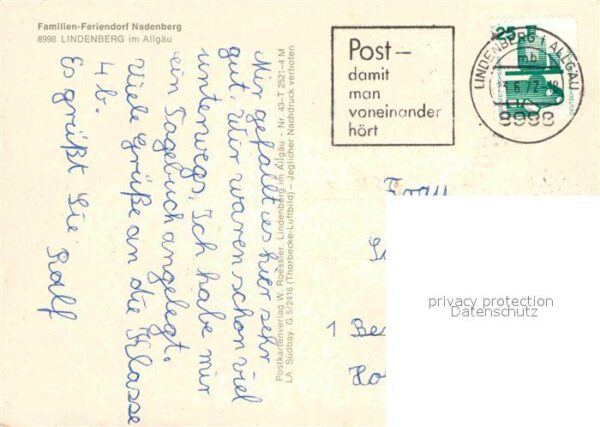 Familien-Feriendorf Nadenberg
8998 LINDENBERG im Allgäu
Mir gefällt es hier sehr
gut. Wir waren schon viel
unterwegs. Ich habe mir
ein Tagebuch angelegt.
Viele Grüße an die Klasse
4b.
Es grüßt Sie Ralf
Postkartenverlag W. Roessler, Lindenberg im Allgäu - Nr. 43-T 2521-4 M
LA. Südbay. G 5/2416 (Thorbecke-Luftbild) – Jeglicher Nachdruck verboten
Post –
damit
man
voneinander
hört
25
LINDENBERG i ALLGÄU
mb
8998
Frau
1 Be
privacy protection
Datenschutz